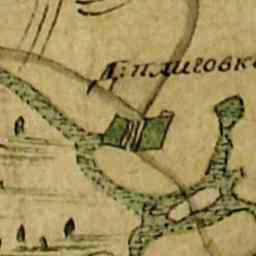 Д: плиговк